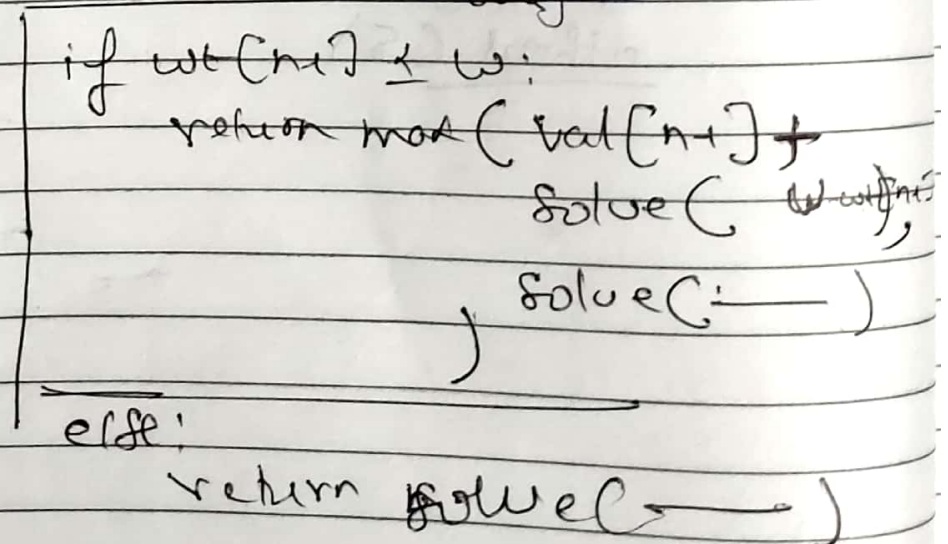 if wt[n-1] ≤ w:
return max( val[n-1] +
solve( w-wt[n-1]),
solve( — )
)
else:
return solve( — )